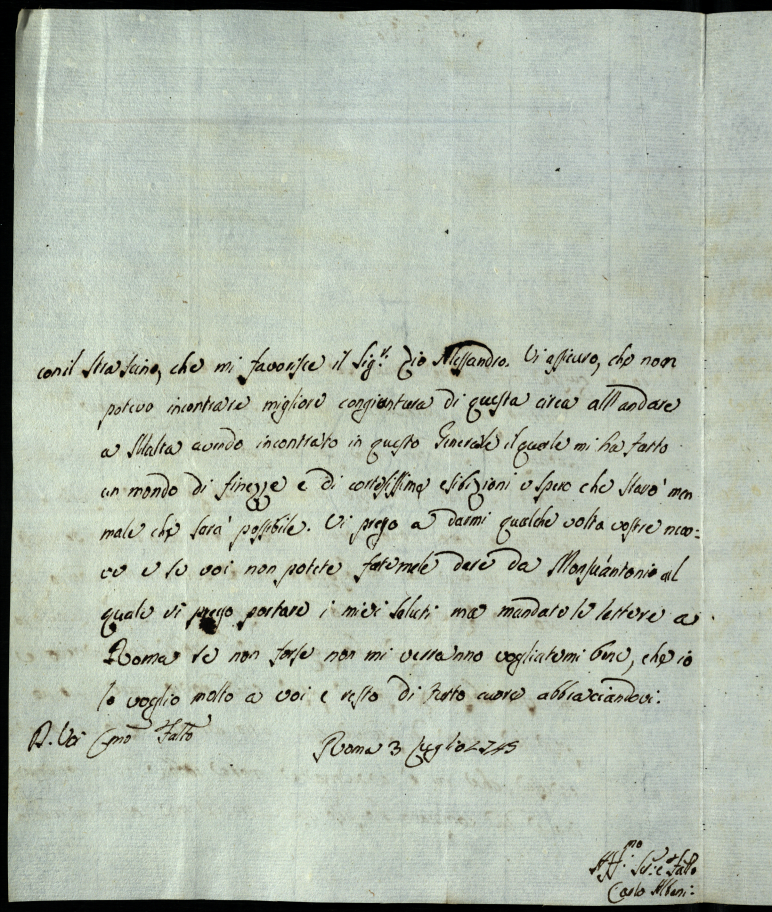 con il strascino, che mi favorisce il Sig.r Zio Alessandro. Vi assicuro, che non
potevo incontrare migliore congiontura di questa circa all'andare
a Malta avendo incontrato in questo Generale il quale mi ha fatto
un mondo di finezze e di cortesissime esibizioni e spero che starò men
male che sarà possibile. Vi prego a darmi qualche volta vostre nuo=
ve e se voi non potete fatemele dare da Monsù Antonio al
quale vi prego portare i miei saluti ma mandate le lettere a
Roma se non forse non mi verranno vogliatemi bene, che io
lo voglio molto a voi e resto di tutto cuore abbracciandovi.
D. Voi Cmo Fatto
Roma 3 luglio 1745
Aff.mo Ser: e Fatto
Carlo Albani: